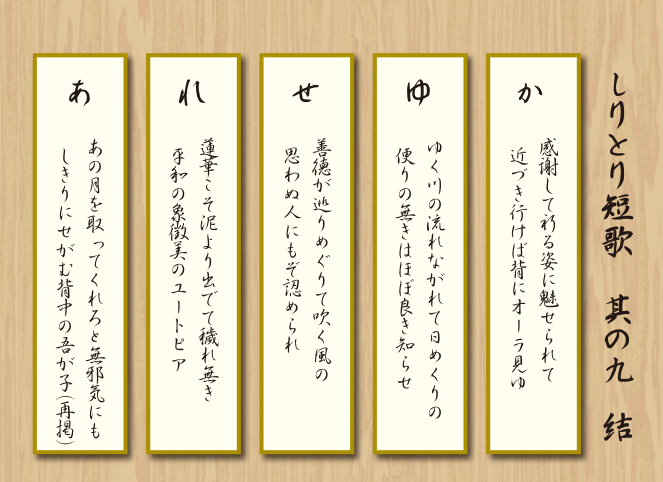 しりとり短歌　其の九　結
か
感謝して祈る姿に魅せられて
近づき行けば背にオーラ見ゆ
ゆ
ゆく川の流れながれて日めくりの
便りの無きはほぼ良き知らせ
せ
善徳が巡りめぐりて吹く風の
思わぬ人にもぞ認められ
れ
蓮華こそ泥より出でて穢れ無き
平和の象徴美のユートピア
あ
あの月を取ってくれろと無邪気にも
しきりにせがむ背中の吾が子(再掲)